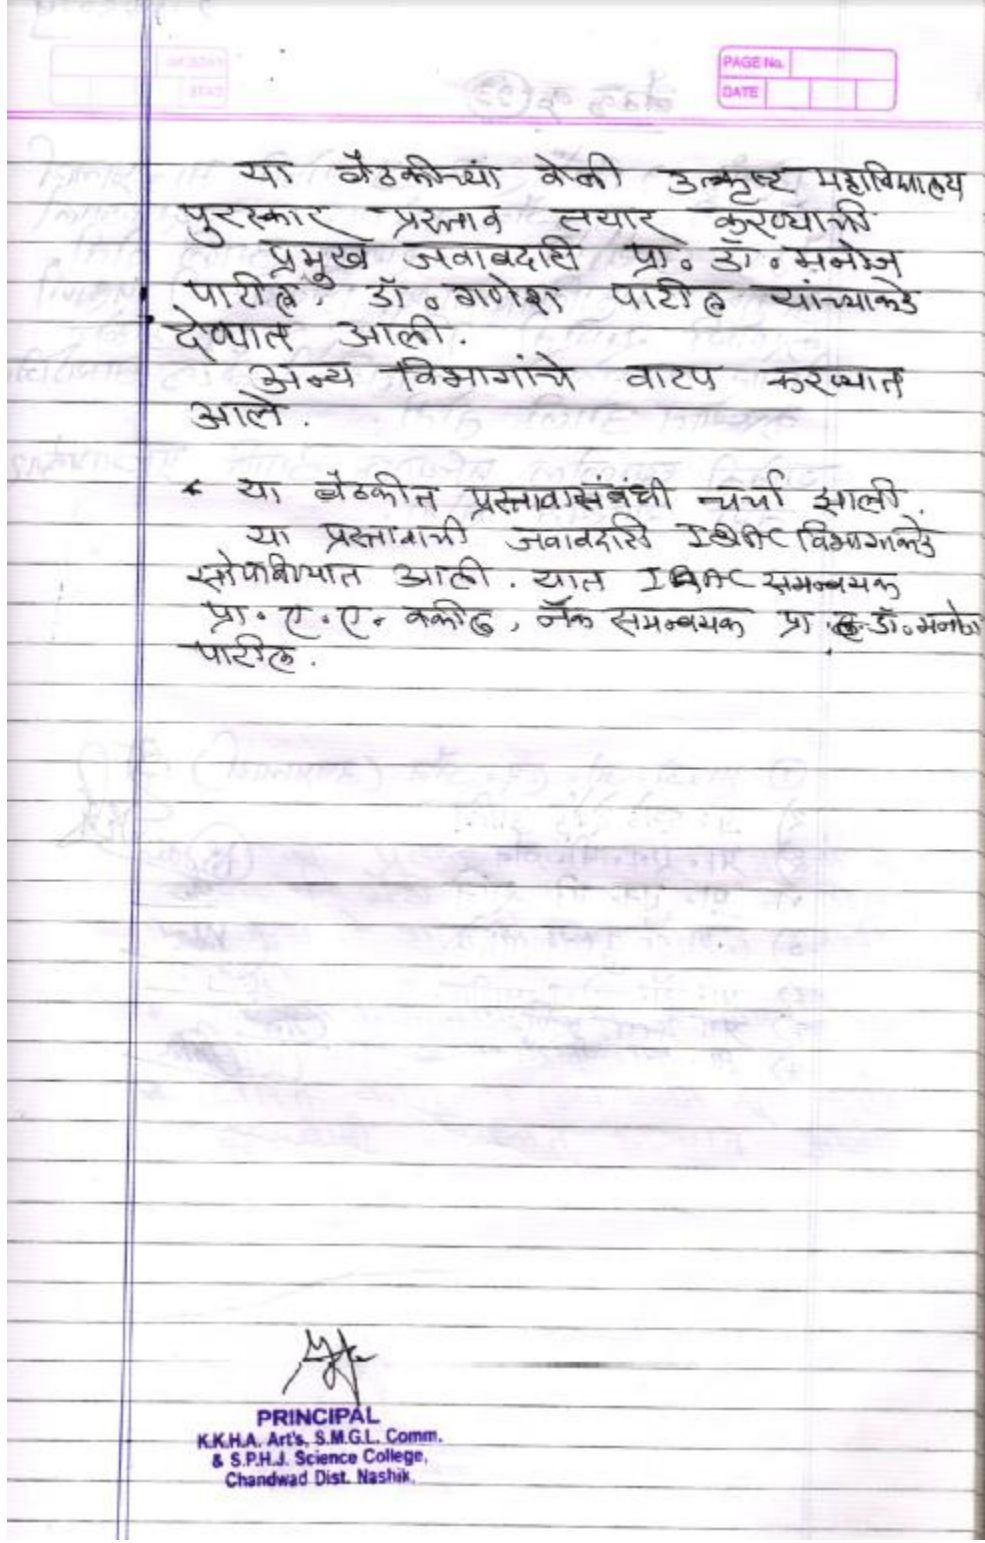 PAGE No.
DATE
या बैठकीच्यां वेळी उत्कृष्ट महाविद्यालय
पुरस्कार प्रस्ताव तयार करण्याची
प्रमुख जवाबदारी प्रा. डॉ. मनोज
पाटील, डॉ. गणेश पाटील यांच्याकडे
देण्यात आली.
अन्य विभागांचे वाटप करण्यात
आले.
या बैठकीत प्रस्तावासंबंधी चर्चा झाली.
या प्रस्तावाची जवाबदारी IQAC विभागाकडे
सोपविण्यात आली. यात IQAC समन्वयक
प्रा. ए. ए. वकील, नॅक समन्वयक प्रा डॉ. मनोज
पाटील.
PRINCIPAL
K.K.H.A. Art's, S.M.G.L. Comm.
& S.P.H.J. Science College,
Chandwad Dist. Nashik.